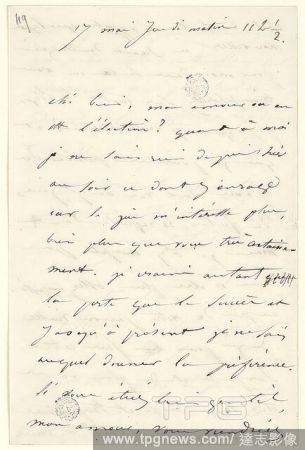 49
17 mai Jeudi matin 11 h ½
Eh bien, mon amour où en
est l'élection? quant à moi
je ne sais rien depuis hier
au soir ce dont j'enrage
car le jeu m'intéresse plus,
bien plus que vous très certaine-
ment. je crains autant
la perte que le succès et
jusqu'à présent je ne sais
auquel donner la préférence.
Si vous étiez bien gentil,
mon amour, vous viendriez
TPG
www.tpgnews.com/ 達志影像